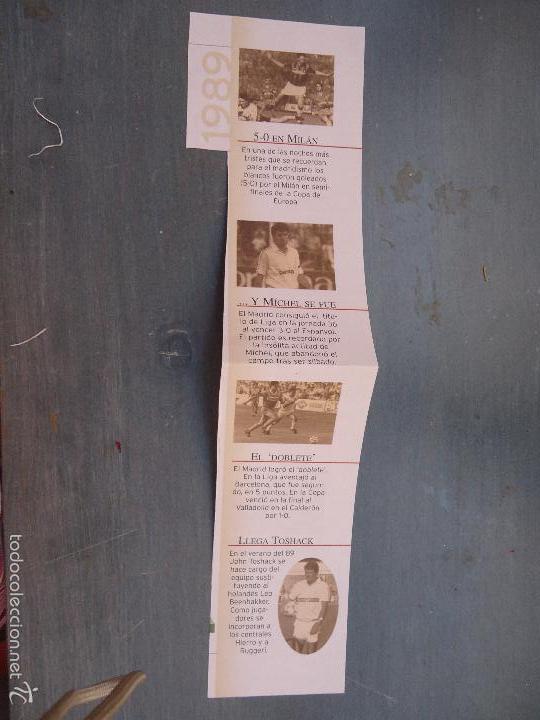 1989
5-0 EN MILÁN
En una de las noches más
tristes que se recuerdan
para el madridismo los
blancos fueron goleados
(5-0) por el Milán en semi-
finales de la Copa de
Europa.
... Y MÍCHEL SE FUE
El Madrid consiguió el títu-
lo de Liga en la jornada 36
al vencer 3-0 al Espanyol.
El partido es recordado por
la insólita actitud de
Míchel, que abandonó el
campo tras ser silbado.
EL 'DOBLETE'
El Madrid logró el 'doblete'.
En la Liga aventajó al
Barcelona, que fue segun-
do, en 5 puntos. En la Copa
venció en la final al
Valladolid en el Calderón
por 1-0.
LLEGA TOSHACK
En el verano del 89
John Toshack se
hace cargo del
equipo susti-
tuyendo al
holandés Leo
Beenhakker.
Como juga-
dores se
incorporan a
los centrales
Hierro y a
Ruggeri.
todocoleccion.net